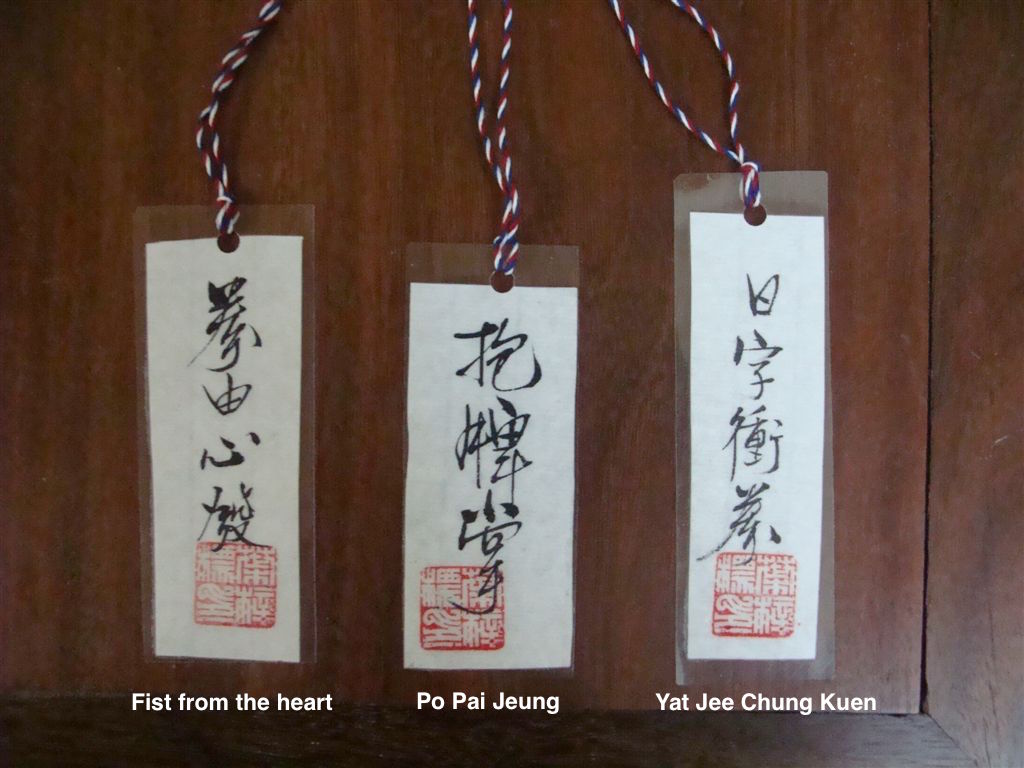 拳由心發
抱牌掌
日字衝拳
Fist from the heart
Po Pai Jeung
Yat Jee Chung Kuen